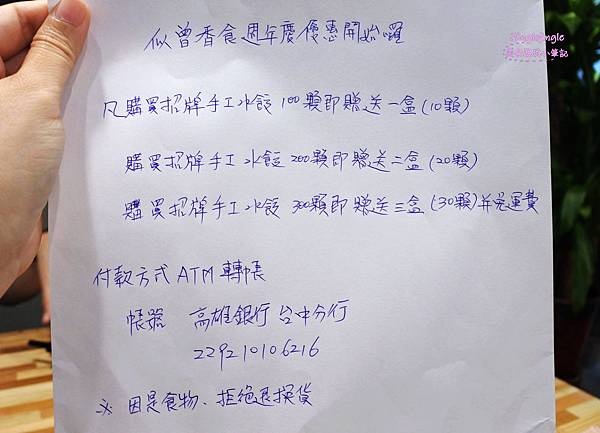 似曾香食週年慶優惠開始囉
凡購買招牌手工水餃100顆即贈送一盒(10顆)
購買招牌手工水餃200顆即贈送二盒(20顆)
購買招牌手工水餃300顆即贈送三盒(30顆)并免運費
付款方式 ATM 轉帳
帳號 高雄銀行台中分行
229210106216
※ 因是食物、拒絕退換貨
小筆記